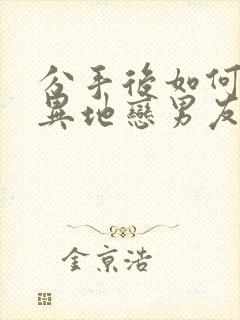 分手後如何
異地戀男友
金京浩